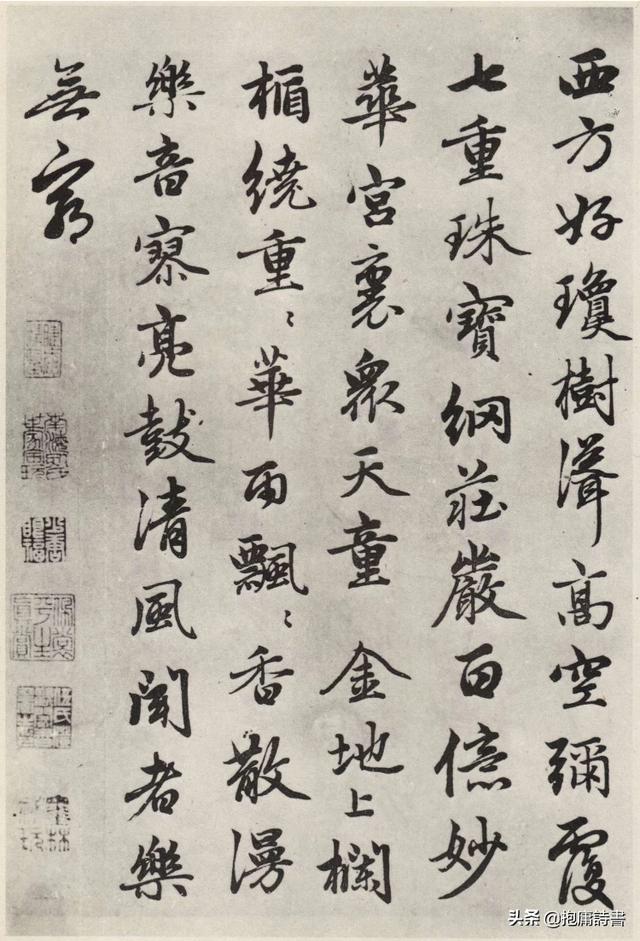 西方好瓊樹聳高空彌覆
七重珠寶網莊嚴百億妙
華宮裏衆天童 金地上欄
楯繞重〻華雨飄〻香散漫
樂音寥亮鼓清風聞者樂
無窮
头条 @抱庸詩書